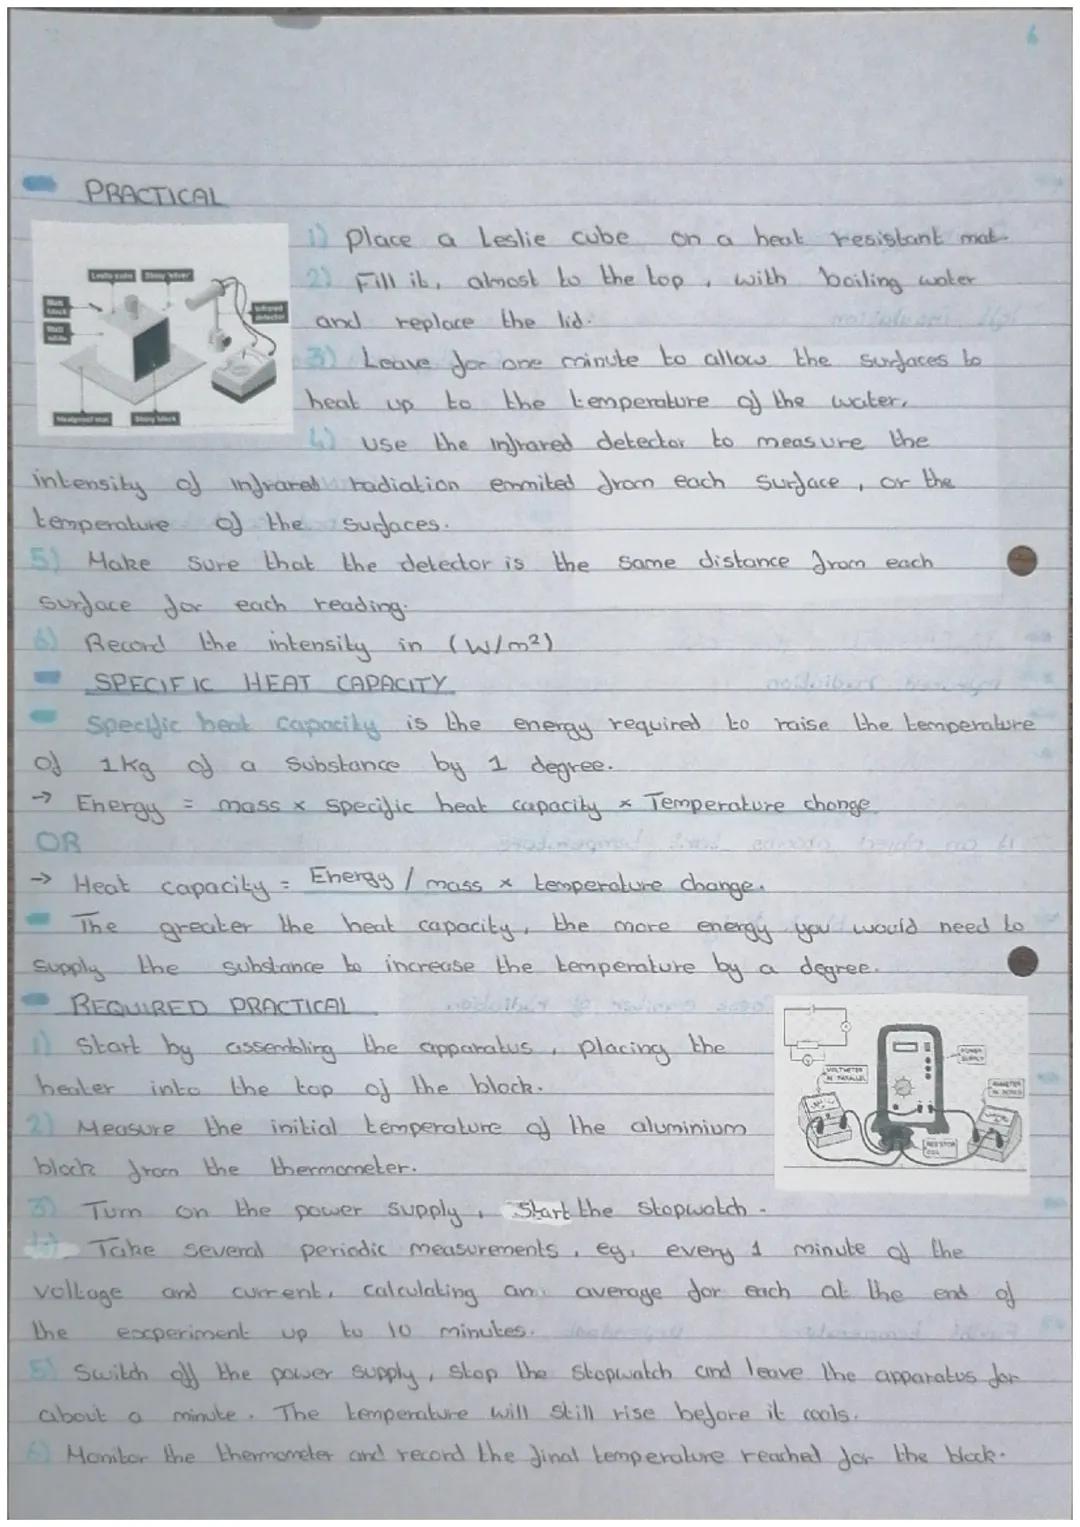 6
PRACTICAL
1) Place a Leslie cube on a heat resistant mat.
Leslie cube Shiny silver
2) Fill it, almost to the top, with boiling water
Matt black
Infrared detector
and replace the lid.
Matt white
3) Leave for one minute to allow the surfaces to
heat up to the temperature of the water.
Heatproof mat Shiny black
4) Use the infrared detector to measure the
intensity of infrared radiation emmited from each surface, or the
temperature of the surfaces.
5) Make sure that the detector is the same distance from each
surface for each reading.
6) Record the intensity in (W/m²)
SPECIFIC HEAT CAPACITY
Specific heat capacity is the energy required to raise the temperature
of 1kg of a substance by 1 degree.
→ Energy = mass x specific heat capacity x Temperature change
OR
→ Heat capacity = Energy / mass x temperature change.
The greater the heat capacity, the more energy you would need to
supply the substance to increase the temperature by a degree.
REQUIRED PRACTICAL
1) Start by assembling the apparatus, placing the
heater into the top of the block.
POWER SUPPLY
VOLTMETER IN PARALLEL
AMMETER IN SERIES
2) Measure the initial temperature of the aluminium
block from the thermometer.
RESISTOR COIL
3) Turn on the power supply, Start the stopwatch.
4) Take several periodic measurements, eg, every 1 minute of the
voltage and current, calculating an average for each at the end of
the experiment up to 10 minutes.
5) Switch off the power supply, stop the stopwatch and leave the apparatus for
about a minute. The temperature will still rise before it cools.
6) Monitor the thermometer and record the final temperature reached for the block.